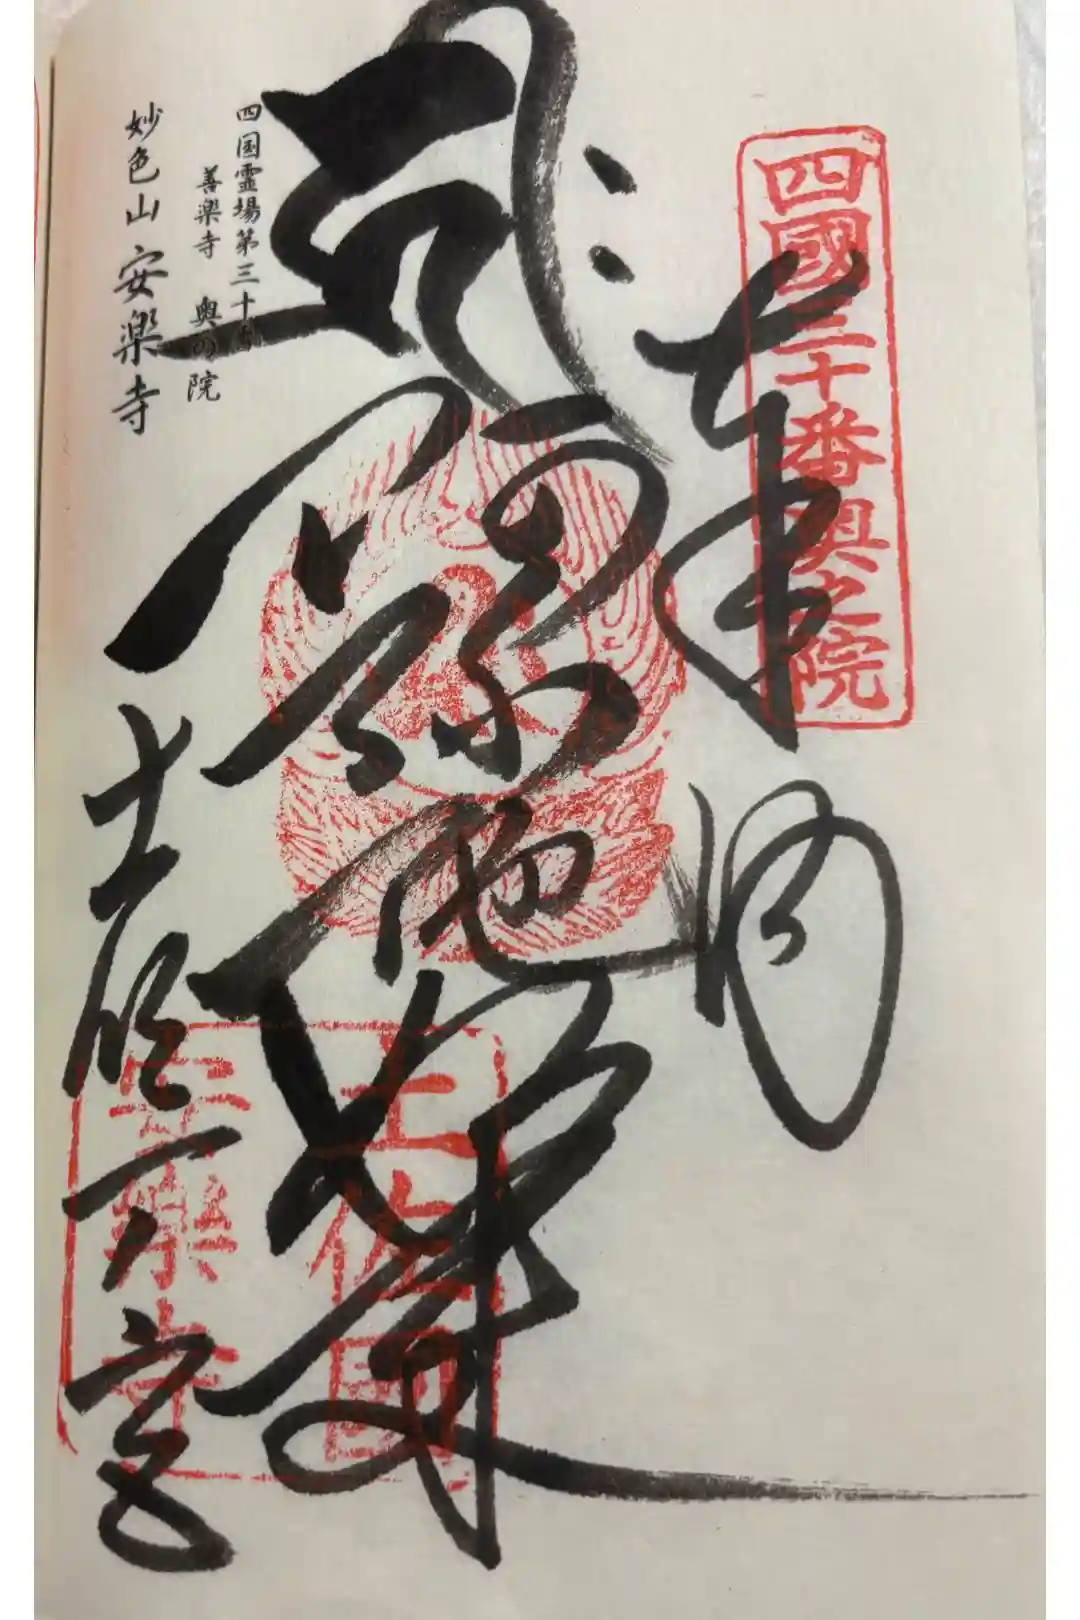 四國三十番奥之院
奉納
弥陀如来
四国霊場第三十番
善楽寺 奥の院
妙色山 安楽寺
土佐國
安樂寺